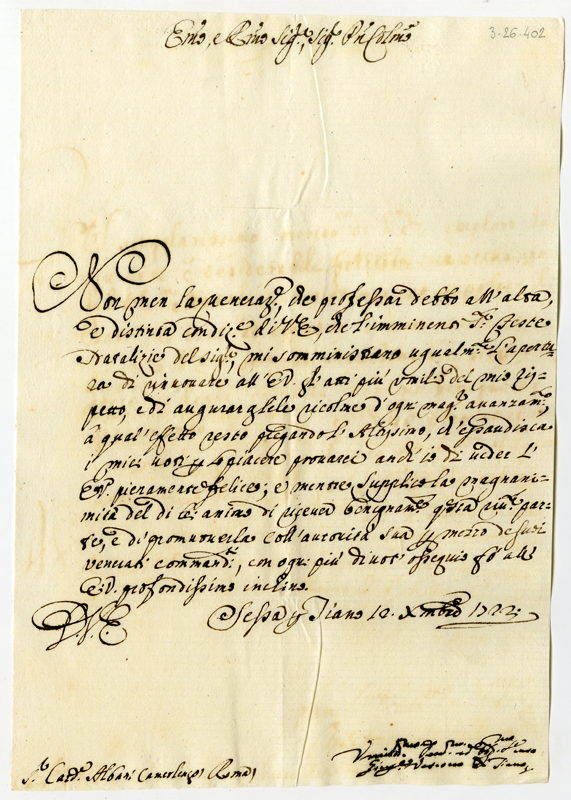 3-26-402
Em̃o, e Rm̃o Sig.r, Sig.r Pñ Colm̃o
Non men la veneraz.e, che professar debbo all'alta,
e distinta condiz.e di V.E., che l'imminenti S.te Feste
Natalizie del Sig.re, mi somministrano ugualm.te l'apertu=
ra di rinnovare all'E.V. gl'atti più umili del mio ris=
petto, e di augurargliele ricolme d'ogni mag.r avanzam.to,
à qual'effetto resto pregando l'Altissimo, ch'essaudisca
i miei voti p lo piacere provarei anch'io di veder l'
E.V. pienamente felice; e mentre supplico la magnani=
mità del di lei animo di ricever benignam.te questa mia par=
te, e di promuoverla coll'autorità sua p mezzo de suoi
venerati command.ti, con ogni più divot' ossequio fò all'
E.V. profondissimo inchino.
D.V.E. Sessa p Tiano 12. Xmbre 1722.
S.r Card.e Albani Camerlengo Roma
Vescovo di Tiano